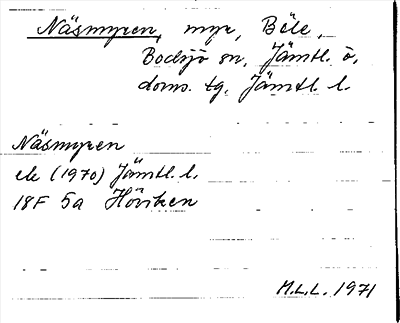 Näsmyren, myr, Béle,
Bodsjö sn, Jämtl. ö.
doms. tg. Jämtl. l.
Näsmyren
ek (1970) Jämtl. l.
18F 5a Höviken
M.L.L. 1971